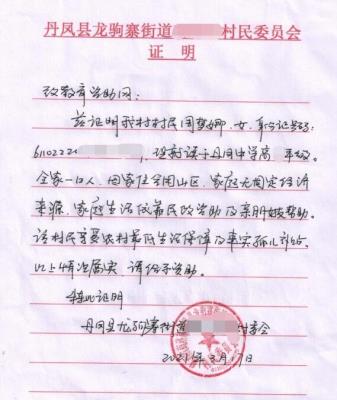 丹凤县龙驹寨街道 村民委员会
证 明
致教育资助网：
兹证明我村村民周梦娜，女，身份证号码：
6110222 ，现就读于丹凤中学高 年级。
全家一口人，因家住合同山区，家庭无固定经济
来源，家庭生活依靠民政资助及亲朋好友帮助。
该村民享受农村最低生活保障及事实孤儿补贴。
以上情况属实，请给予资助。
特此证明
丹凤县龙驹寨街道 村委会
2021年3月17日